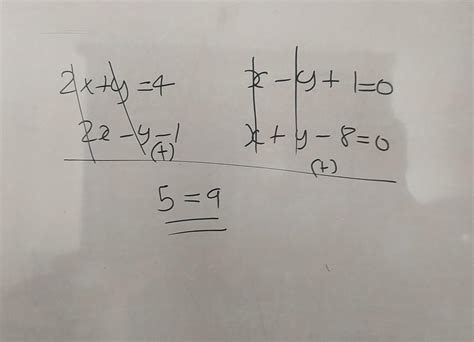 2x+y=4
2x-y-1
(+)
x-y+1=0
x+y-8=0
(+)
5=9